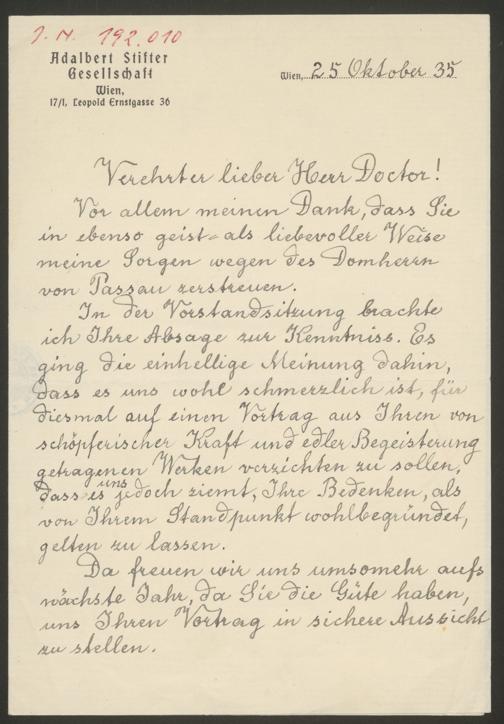 J. N. 192.010
Adalbert Stifter
Gesellschaft
Wien,
17/I, Leopold Ernstgasse 36
Wien, 25 Oktober 35
Verehrter lieber Herr Doctor!
Vor allem meinen Dank, dass Sie
in ebenso geist- als liebevoller Weise
meine Sorgen wegen des Domherrn
von Passau zerstreuen.
In der Vorstandsitzung brachte
ich Ihre Absage zur Kenntniss. Es
ging die einhellige Meinung dahin,
dass es uns wohl schmerzlich ist, für
diesmal auf einen Vortrag aus Ihren von
schöpferischer Kraft und edler Begeisterung
getragenen Werken verzichten zu sollen,
dass es uns jedoch ziemt, Ihre Bedenken, als
von Ihrem Standpunkt wohlbegründet,
gelten zu lassen.
Da freuen wir uns umsomehr aufs
nächste Jahr, da Sie die Güte haben,
uns Ihren Vortrag in sichere Aussicht
zu stellen.